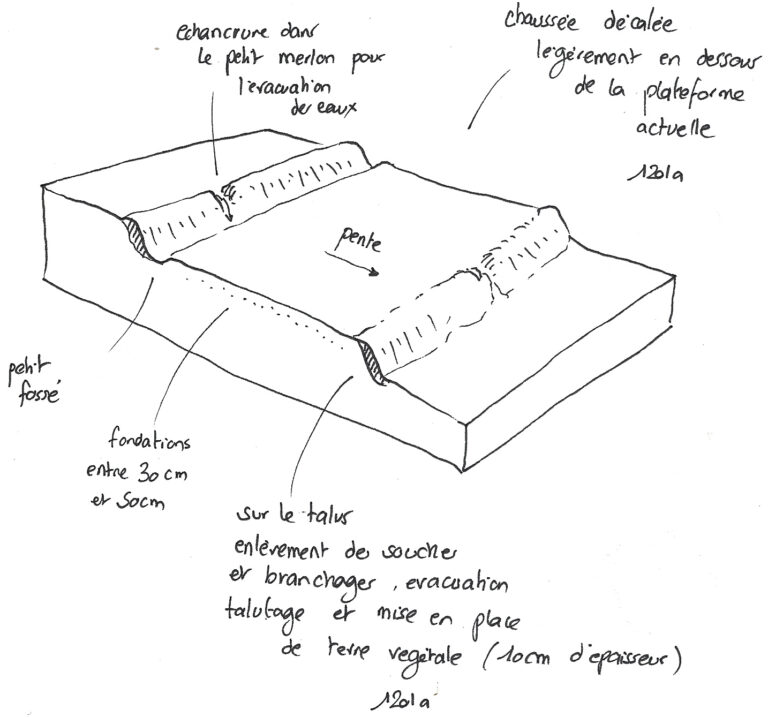 echancrure dans
le petit merlon pour
l'evacuation
des eaux
chaussée décalée
légèrement en dessous
de la plateforme
actuelle
1201a
pente
petit
fossé
fondations
entre 30 cm
et 50cm
sur le talus
enlèvement de souches
et branchages, evacuation
talutage et mise en place
de terre vegetale (10cm d'épaisseur)
1201a